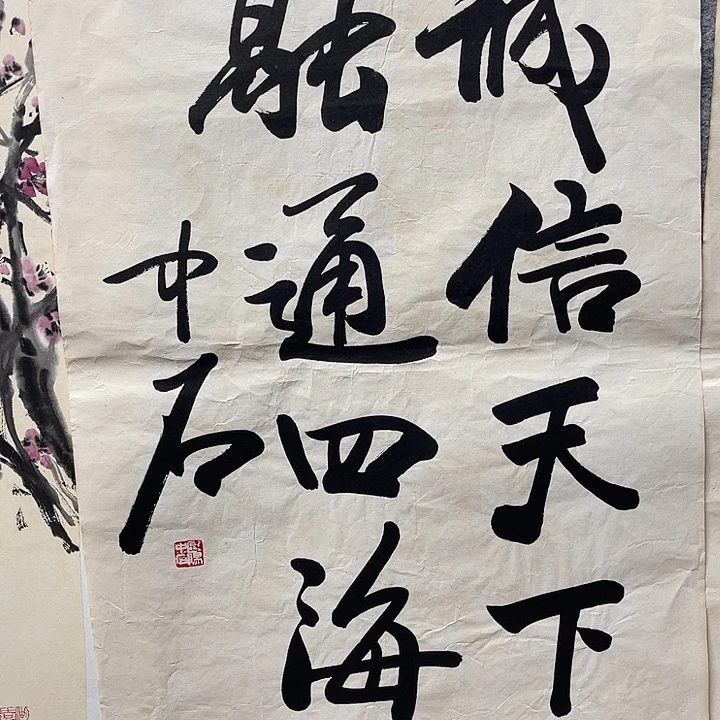 诚信天下
融通四海
中石